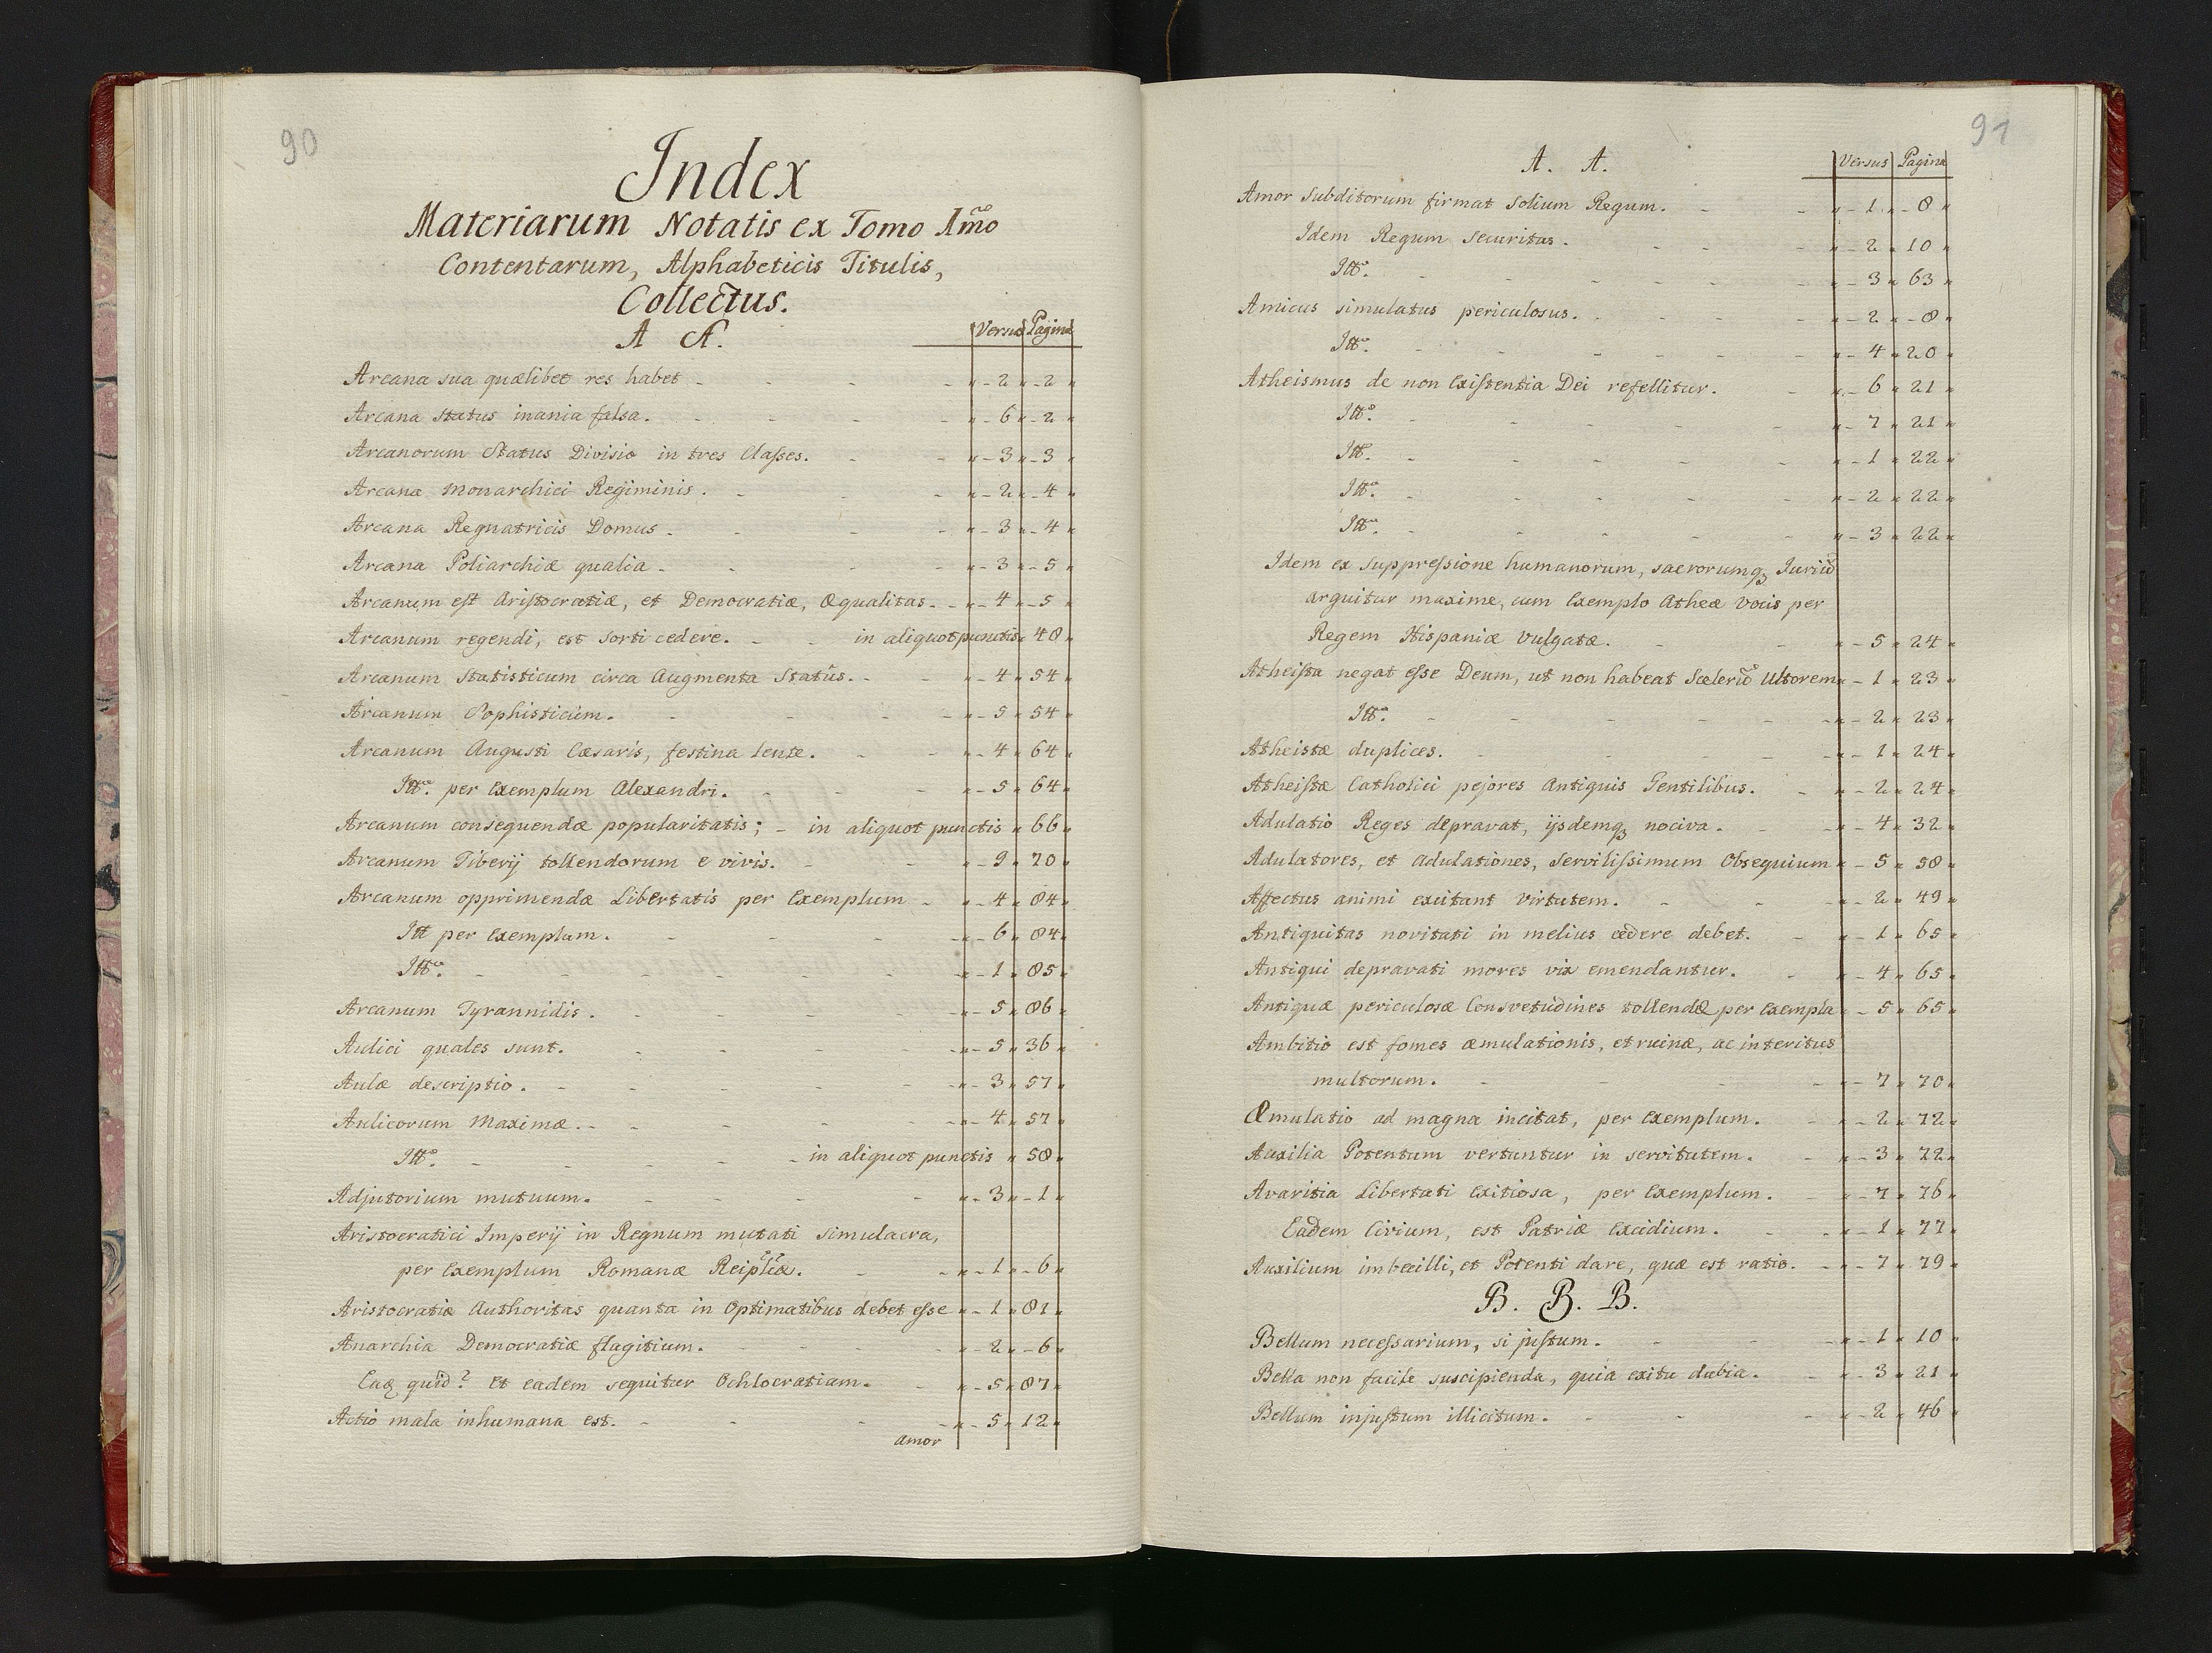 90
Index
Materiarum Notatis ex Tomo Imo
Contentarum, Alphabeticis Titulis,
Collectus.
A A. Versus Pagina
Arcana sua quælibet res habet - 2 - 2
Arcana Status inania falsa. - 6 - 2
Arcanorum Status Divisio in tres Classes. - 3 - 3
Arcana Monarchici Regiminis. - 2 - 4
Arcana Regnatricis Domus. - 3 - 4
Arcana Poliarchiæ qualia - 3 - 5
Arcanum est Aristocratiæ, et Democratiæ, Æqualitas. - 4 - 5
Arcanum regendi, est sorti cedere. - in aliquot punctis 48
Arcanum Statisticum circa Augmenta Statûs. - 4 54
Arcanum Sophisticum. - 5 54
Arcanum Augusti Cæsaris, festina lente. - 4 64
Itto. per Exemplum Alexandri. - 5 64
Arcanum consequendæ popularitatis; - in aliquot punctis 66
Arcanum Tiberij tollendorum e vivis. - 9 70
Arcanum opprimendæ Libertatis per Exemplum - 4 84
Itt per Exemplum. - 6 84
Itto. - 1 85
Arcanum Tyrannidis. - 5 86
Aulici quales sunt. - 5 36
Aulæ descriptio. - 3 57
Aulicorum Maximæ. - 4 57
Itto. - in aliquot punctis 58
Adjutorium mutuum. - 3 - 1
Aristocratici Imperij in Regnum mutati simulacra,
per Exemplum Romanæ Reiplicæ. - 1 - 6
Aristocratiæ Authoritas quanta in Optimatibus debet esse - 1 81
Anarchia Democratiæ flagitium. - 2 - 6
Eaq quid? Et eadem sequitur Ochlocratiam. - 5 87
Actio mala inhumana est. - 5 12
Amor
91
A. A. Versus Pagina
Amor Subditorum firmat Solium Regum. - 1 - 8
Idem Regum Securitas. - 2 10
Itto. - 3 63
Amicus simulatus periculosus. - 2 - 8
Itto. - 4 20
Atheismus de non Existentia Dei refellitur. - 6 21
Itto. - 7 21
Itto. - 1 22
Itto. - 2 22
Itto. - 3 22
Idem ex suppressione humanorum, sacrorumq Juriū
arguitur maxime, cum Exemplo Atheæ Vocis per
Regem Hispaniæ Vulgatæ. - 5 24
Atheista negat esse Deum, ut non habeat Scelerū Ultorem - 1 23
Itto. - 2 23
Atheistæ duplices. - 1 24
Atheistæ Catholici pejores Antiquis Gentilibus. - 2 24
Adulatio Reges depravat, ijsdemq nociva. - 4 32
Adulatores, et Adulationes, Servilissimum Obsequium - 5 58
Affectus animi excitant virtutem. - 2 49
Antiquitas novitati in melius cedere debet. - 1 65
Antiqui depravati mores vix emendantur. - 4 65
Antiquæ periculosæ Consvetudines tollendæ per Exempla - 5 65
Ambitio est fomes æmulationis, et ruinæ, ac interitus
multorum. - 7 70
Æmulatio ad magna incitat, per Exemplum. - 2 72
Auxilia Potentum vertuntur in servitutem. - 3 72
Avaritia Libertati Exitiosa, per Exemplum. - 7 76
Eadem Civium, est Patriæ Excidium. - 1 77
Auxilium imbecilli, et Potenti dare, quæ est ratio. - 7 79
B. B. B.
Bellum necessarium, si justum. - 1 10
Bella non facile suscipienda, quia exitu dubia. - 3 21
Bellum injustum illicitum. - 2 46